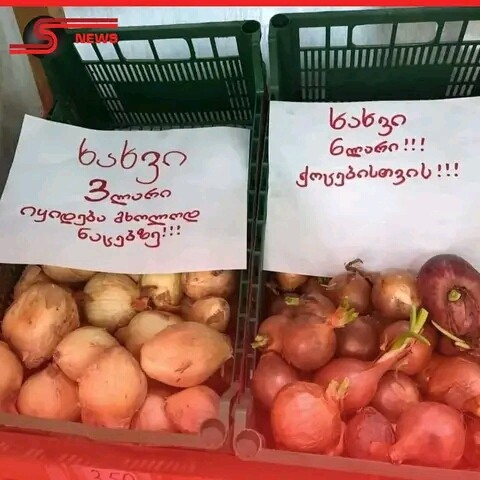 S NEWS
ხახვი
3 ლარი
იყიდება მხოლოდ
ნაცებზე!!!
ხახვი
6 ლარი!!!
ქოცებისთვის!!!
3.50